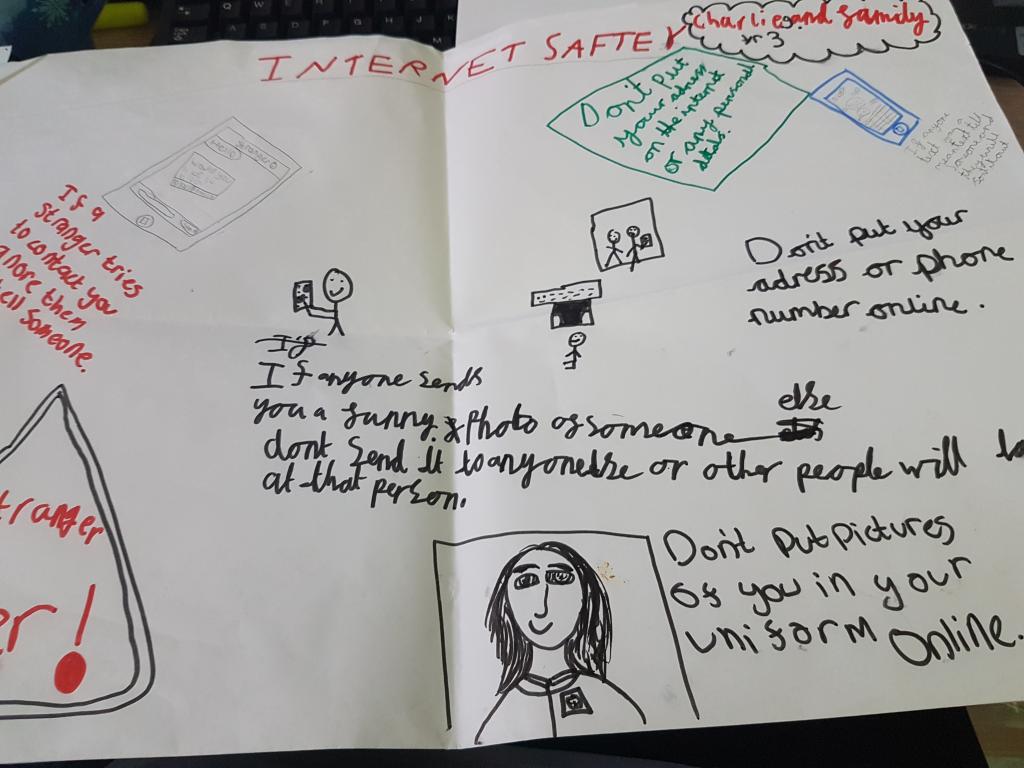 INTERNET SAFTEY
Charlie and family
yr 3
Don't put
your adress
on the internet
or any personal
details.
Stranger
Hello
If anyone
text
mean tell
someone and
If a
stranger tries
to contact you
ignore them
tell someone.
Don't put your
adress or phone
number online.
If
If anyone sends
you a funny photo of someone else
dont send it to anyone else or other people will
at that person.
tranger
er!
Don't put pictures
of you in your
uniform online.